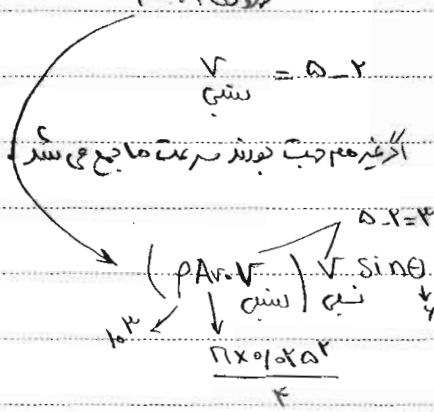 V نسبی = ۵-۲
اگر غیر هم جهت بودند سرعت ها جمع می شد.
۵-۲=۳
(ρA₂.V نسبی) V نسبی sinθ
۱۰³
π×۰/۰۲۵²
۴